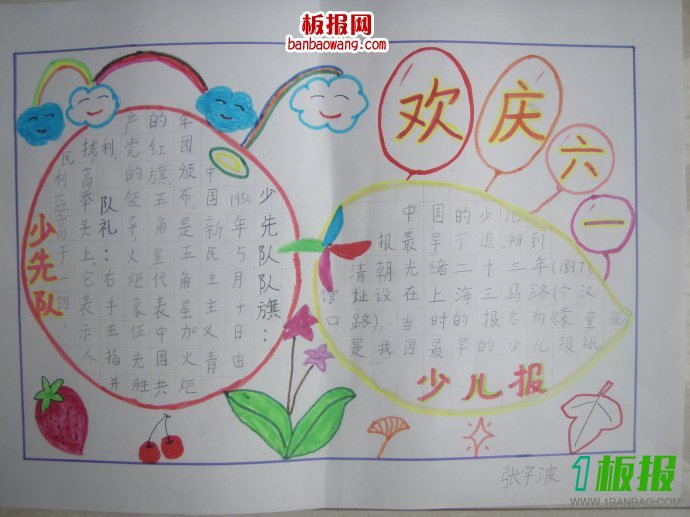 板报网
banbaowang.com
欢庆六一
少先队
少先队队旗：
1950年5月4日由
中国新民主义青
年团颁布,是五角星加火炬
的红旗,五角星代表中国共
产党的领导,火炬象征光胜
利.
队礼：右手五指并
拢,高举头上,它表示人
民利益高于一切。
中国的少儿
报最早丁追溯到
清朝光绪二十三年(1897),
馆址设在上海三马路(今汉
口路).当时的报名为《蒙童报
是我国最早的少儿报纸
少儿报
张宇波
1板报
WWW.1BANBAO.COM